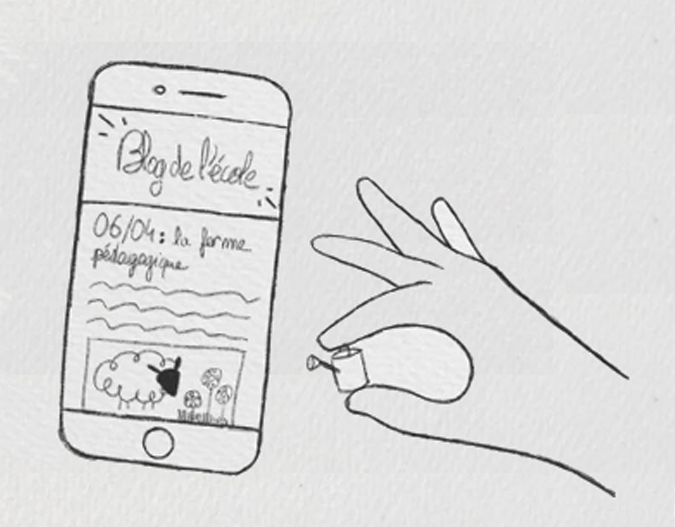 Blog de l'école
06/04: la ferme
pédagogique